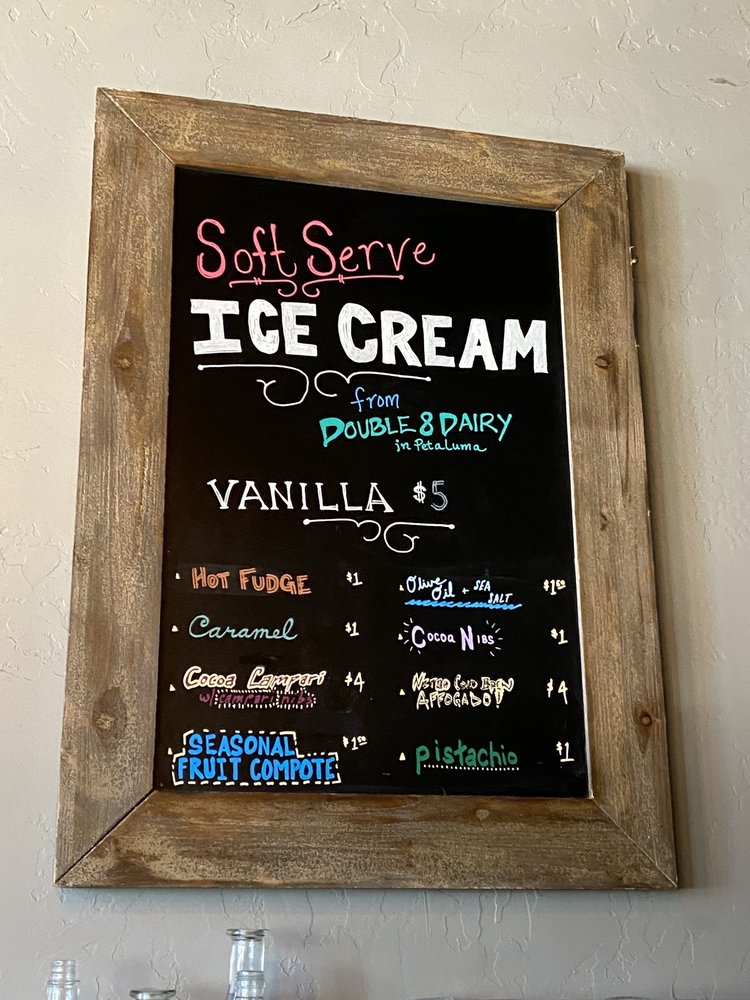 Soft Serve
ICE CREAM
from
DOUBLE 8 DAIRY
in Petaluma
VANILLA $5
HOT FUDGE $1
Caramel $1
Cocoa Campari $4
w/ campari nibs
SEASONAL $1.50
FRUIT COMPOTE
Olive Oil + SEA SALT $1.50
COCOA NIBS $1
NITRO COLD BREW $4
AFFOGADO!
pistachio $1